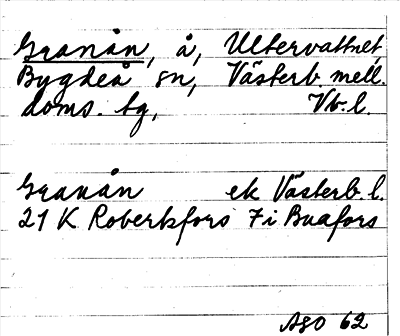 Granån, å, Ultervattnet,
Bygdeå sn, Västerb. mell.
doms. tg, Vb. l.
Granån ek Västerb. l.
21 K Robertsfors 7 i Buafors
ASO 62